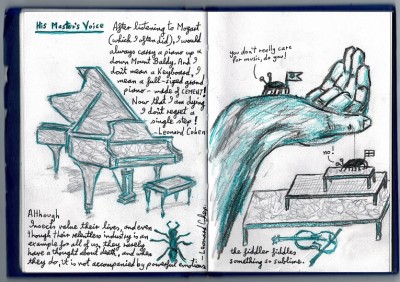 His Master's Voice
After listening to Mozart
(which I often did), I would
always carry a piano up &
down Mount Baldy. And I
don't mean a Keyboard, I
mean a full-sized grand
piano - made of CEMENT!
Now that I am dying
I don't regret a
single step!
-Leonard Cohen
Although
Insects value their lives, and even
though their relentless industry is an
example for all of us, they rarely
have a thought about death, and when
they do, it is not accompanied by powerful emotions
-Leonard Cohen
you don't really care
for music, do you?
no!
the fiddler fiddles
something so sublime.